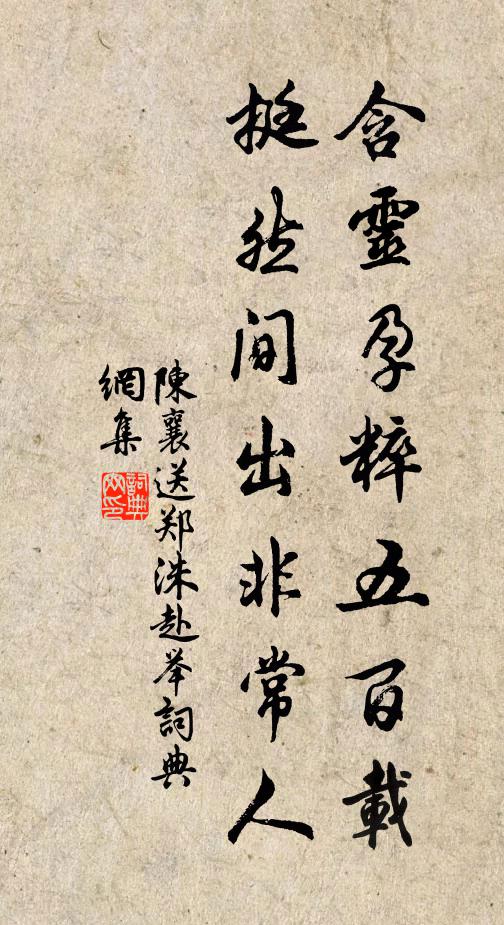 含靈孕粹五百載
挺然間出非常人
陳襄送郑洙赴举詞典
網集
詞典
网印